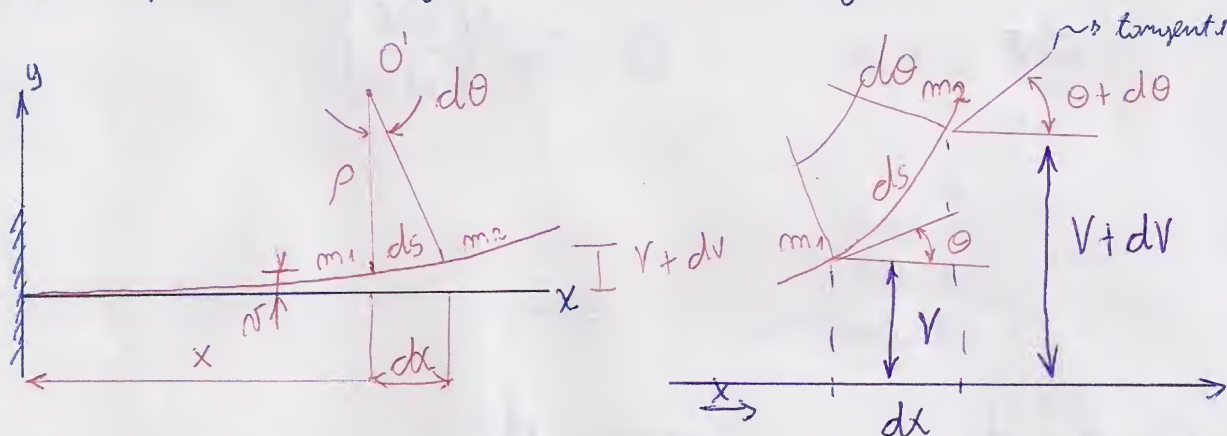 y
O'
dθ
ρ
m1 ds m2
v
V + dV
x
x
dx
tangente
dθ
m2
θ + dθ
ds
m1
θ
V
V + dV
x
dx